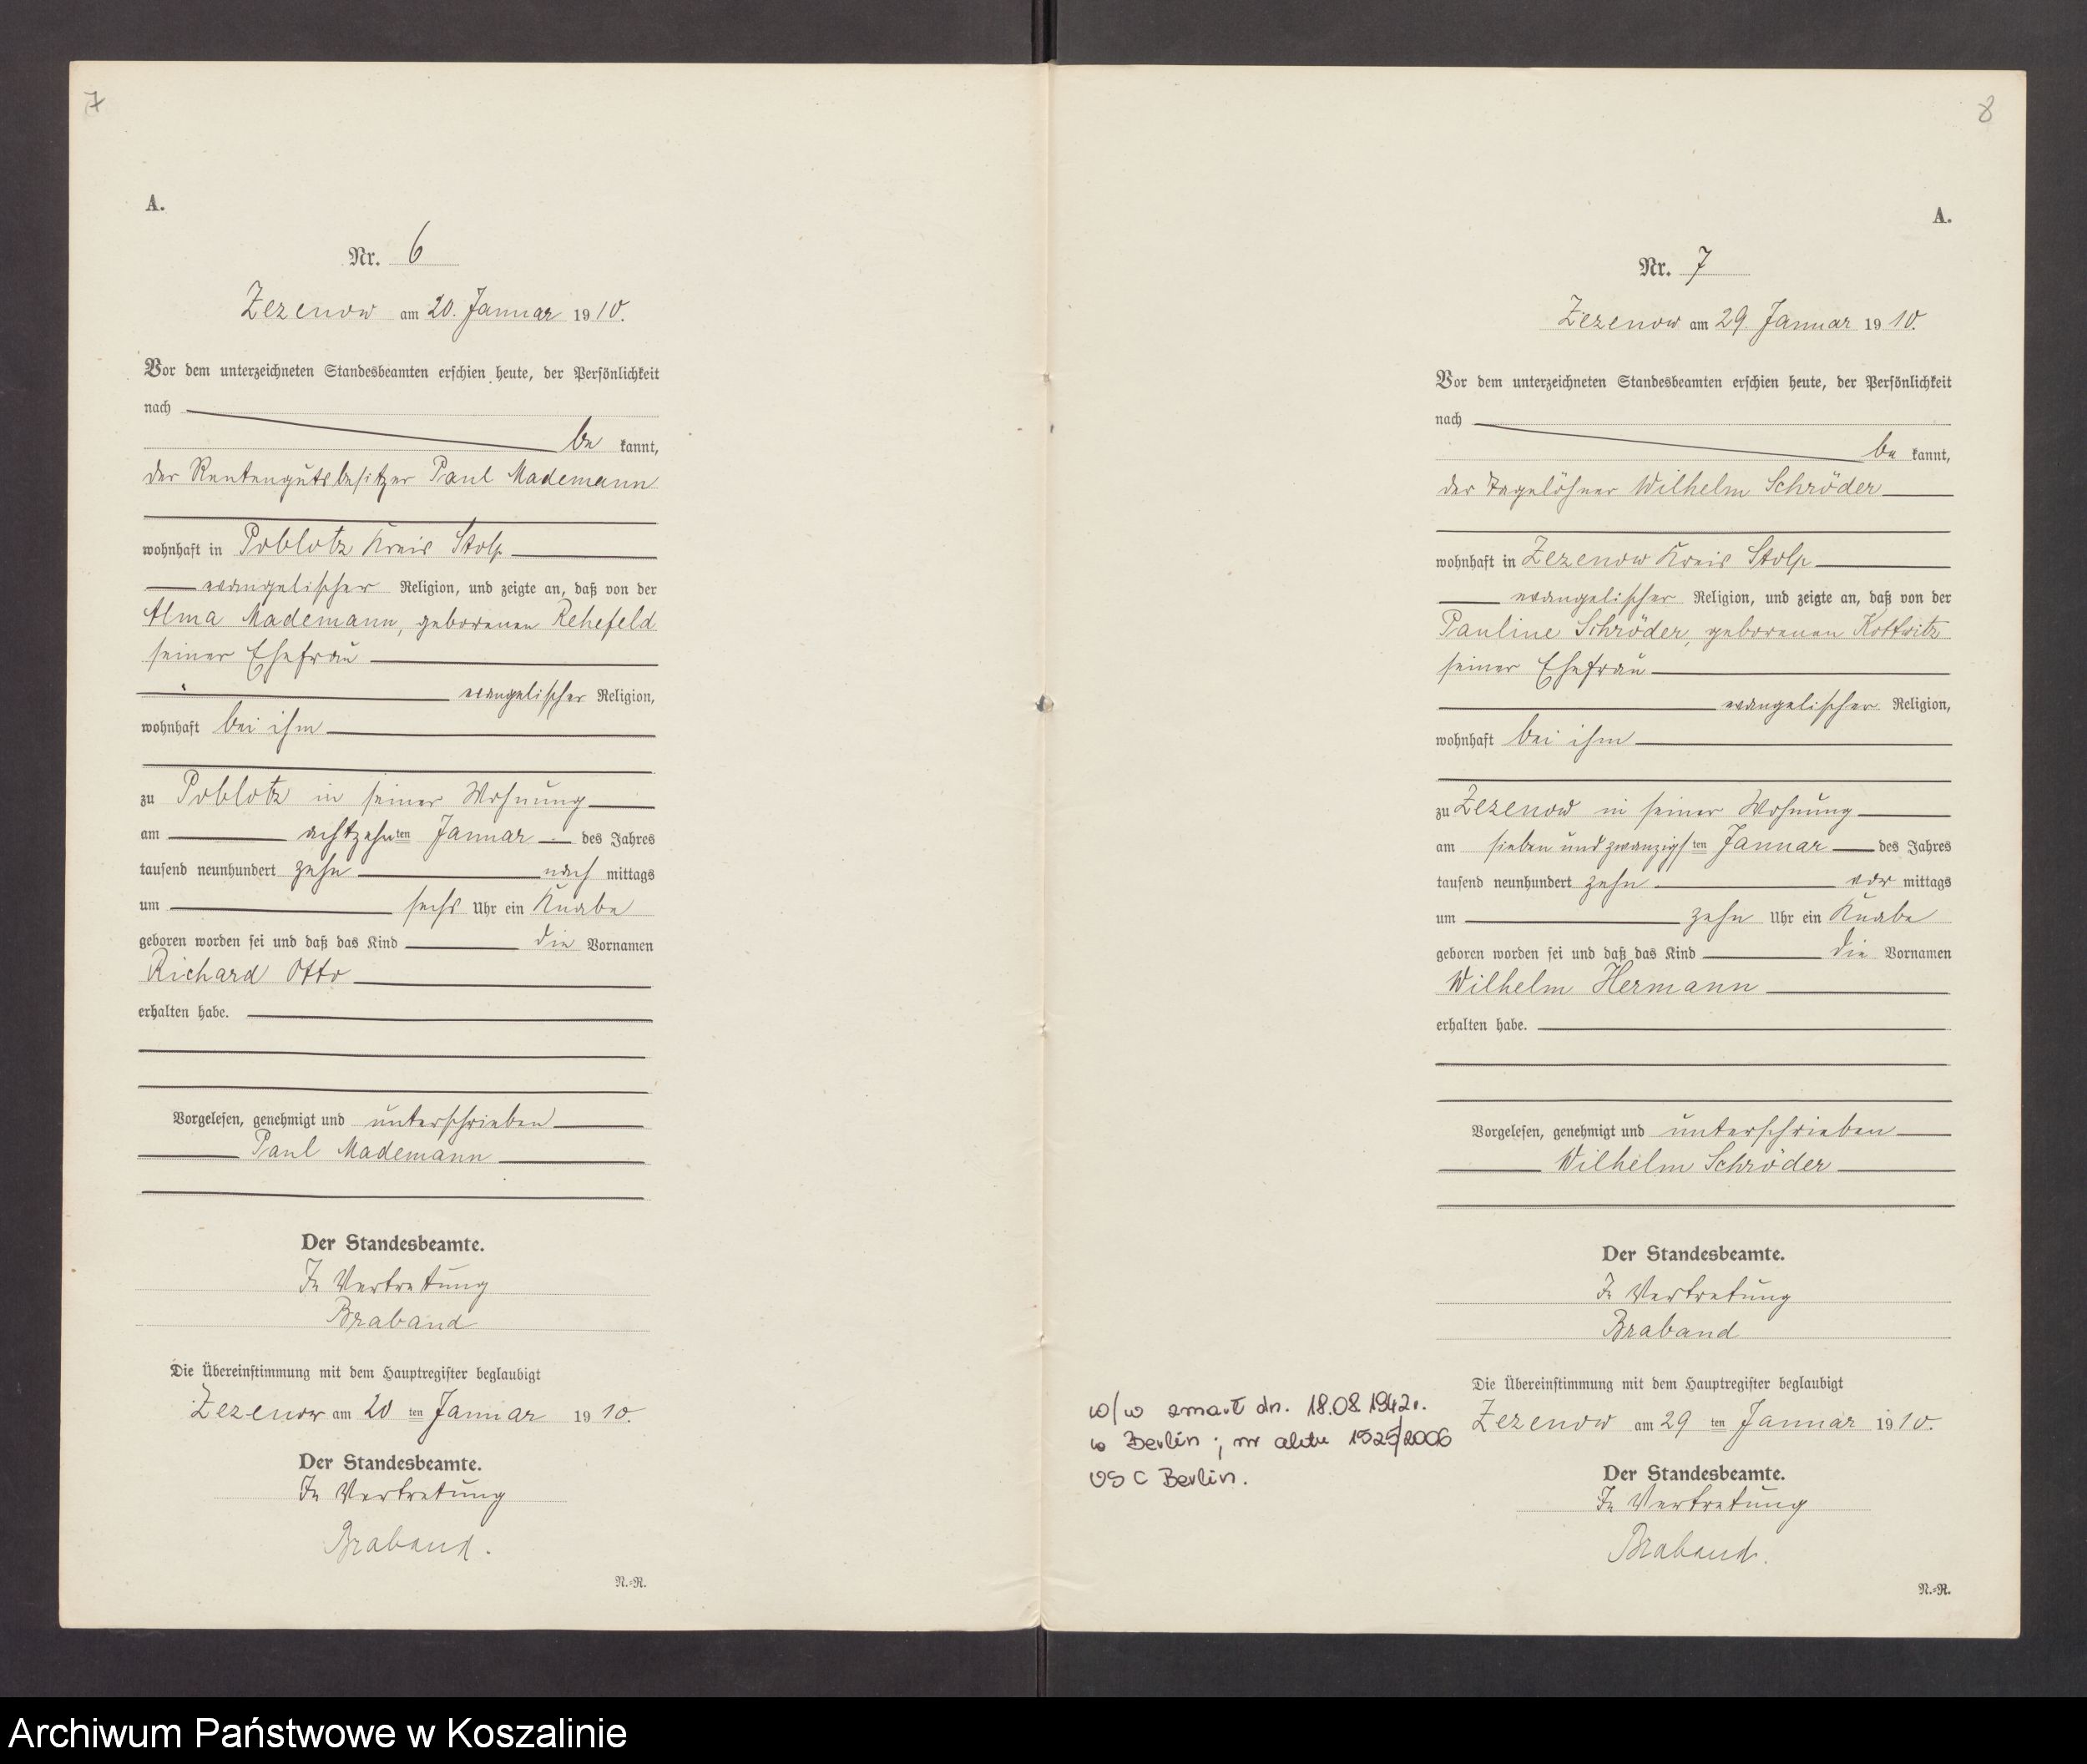 7
A.
Nr. 6
Zezenow am 20. Januar 1910.
Vor dem unterzeichneten Standesbeamten erschien heute, der Persönlichkeit
nach
be kannt,
der Rentengutsbesitzer Paul Mademann
wohnhaft in Poblotz Kreis Stolp
evangelischer Religion, und zeigte an, daß von der
Alma Mademann, geborenen Rehefeld
seiner Ehefrau
evangelischer Religion,
wohnhaft bei ihm
zu Poblotz in seiner Wohnung
am achtzehnten Januar des Jahres
tausend neunhundert zehn nach mittags
um sechs Uhr ein Knabe
geboren worden sei und daß das Kind die Vornamen
Richard Otto
erhalten habe.
Vorgelesen, genehmigt und unterschrieben
Paul Mademann
Der Standesbeamte.
In Vertretung
Braband
Die Übereinstimmung mit dem Hauptregister beglaubigt
Zezenow am 20 ten Januar 1910.
Der Standesbeamte.
In Vertretung
Braband.
N.=R.
8
A.
Nr. 7
Zezenow am 29. Januar 1910.
Vor dem unterzeichneten Standesbeamten erschien heute, der Persönlichkeit
nach
be kannt,
der Tagelöhner Wilhelm Schröder
wohnhaft in Zezenow Kreis Stolp
evangelischer Religion, und zeigte an, daß von der
Pauline Schröder, geborenen Kottwitz
seiner Ehefrau
evangelischer Religion,
wohnhaft bei ihm
zu Zezenow in seiner Wohnung
am sieben und zwanzigsten Januar des Jahres
tausend neunhundert zehn vor mittags
um zehn Uhr ein Knabe
geboren worden sei und daß das Kind die Vornamen
Wilhelm Hermann
erhalten habe.
Vorgelesen, genehmigt und unterschrieben
Wilhelm Schröder
Der Standesbeamte.
In Vertretung
Braband
Die Übereinstimmung mit dem Hauptregister beglaubigt
Zezenow am 29 ten Januar 1910.
Der Standesbeamte.
In Vertretung
Braband.
N.=R.
w/w zmarł dn. 18.08.1942r.
w Berlin; nr aktu 1525/2006
USC Berlin.
Archiwum Państwowe w Koszalinie